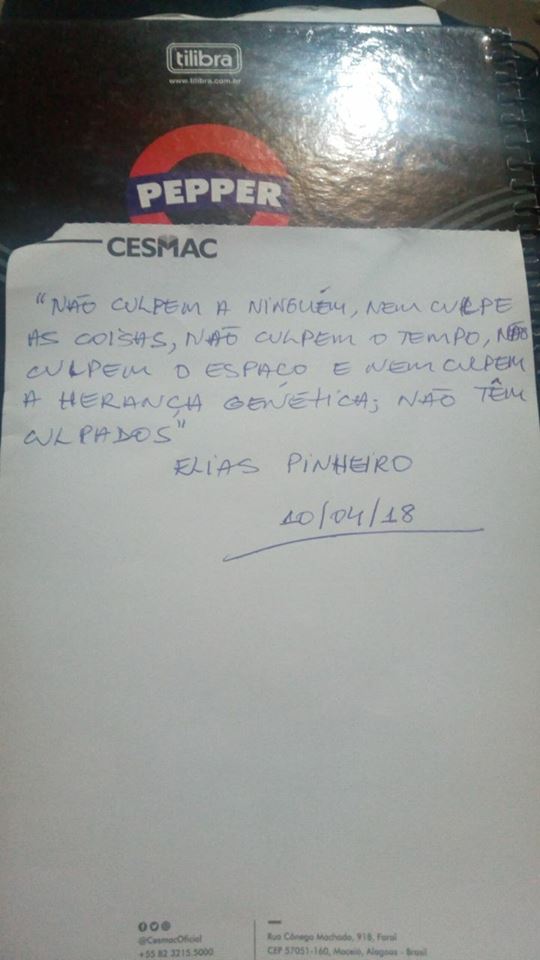 tilibra
www.tilibra.com.br
PEPPER
CESMAC
"NÃO CULPEM A NINGUÉM, NEM CULPE
AS COISAS, NÃO CULPEM O TEMPO, NÃO
CULPEM O ESPAÇO E NEM CULPEM
A HERANÇA GENÉTICA; NÃO TÊM
CULPADOS"
ELIAS PINHEIRO
10/04/18
@CesmacOficial
+55 82 3215.5000
Rua Cônego Machado, 918, Farol
CEP 57051-160, Maceió, Alagoas - Brasil